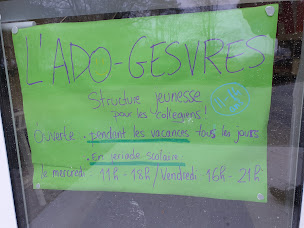 L'ADO-GESVRES
Structure jeunesse
pour les collégiens !
Ouverte . pendant les vacances tous les jours
. En période scolaire
le mercredi 11h - 18h / Vendredi 16h - 21h